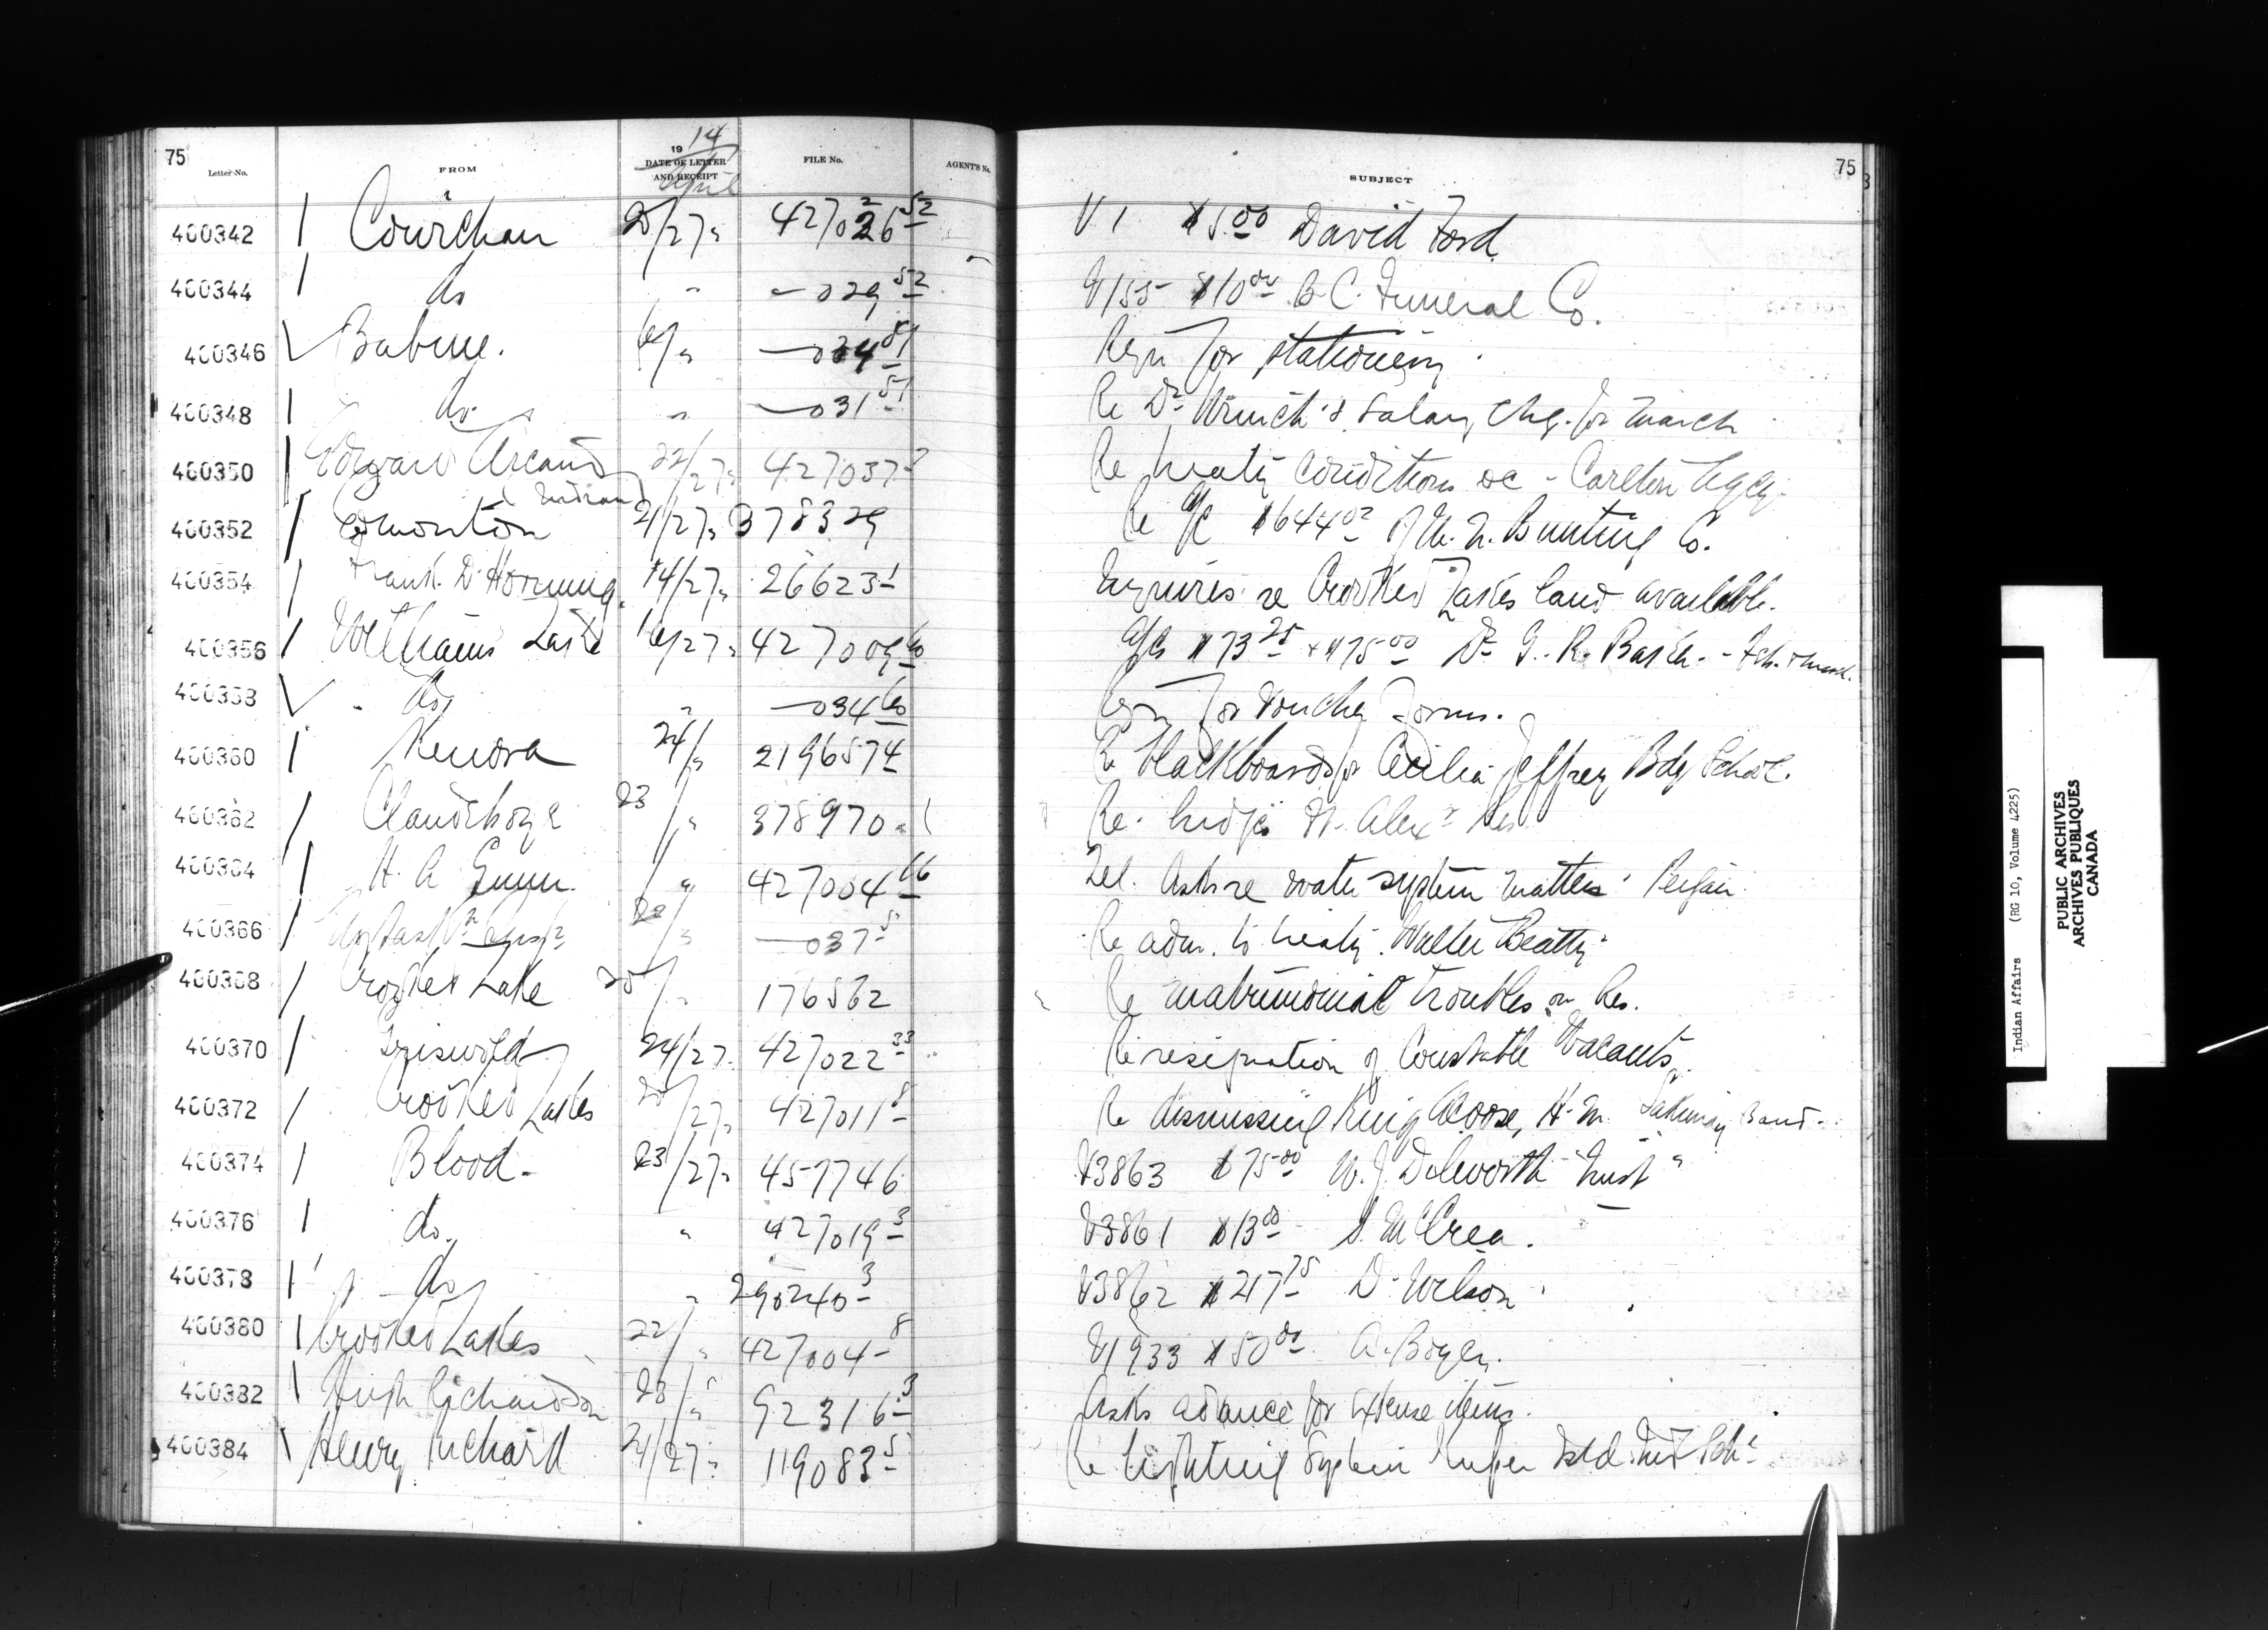 75
Letter No.
FROM
19 14
DATE OF LETTER
AND RECEIPT
April
FILE No.
AGENT'S No.
SUBJECT
75
400342 Cowichan 20/27 V1 $5.00 David Ford
400344 do " —029 52 V155 $10.00 B.C. Funeral Co.
400346 Babine. —034 Reqn for stationery
400348 do " —031 51 Re Dr Wrinch's Salary chq. for March
400350 22/27 427037 Re treaty conditions &c - Carlton Agcy.
400352 Edmonton 21/27 378329 Re a/c $644.02 of Bunting Co.
400354 Frank D. Horning. 14/27 26623-1 Inquires re Crooked Lakes land available.
400356 Williams Lake 16/27 427009 60 a/cs $73.25 + $75.00 Dr G. R. - Feb. & March.
400358 do " —034 60 Reqn for voucher forms.
400360 Kenora 24/" 2196574 Re blackboards for Cecilia Jeffrey Bdg School.
400362 Clandeboye 23/" 378970-1 Re Alexr Res.
400364 H. A. Gunn. 427004 66 Tel. Asks re water system matters Peigan.
400366 " —037 5 Re adm. to treaty Walter Beatty
400368 Crooked Lake 25/" 176562 Re matrimonial troubles on Res.
400370 Griswold 24/27 427022 33 Re resignation of Constable
400372 Crooked Lakes 427011 8 Re dismissing H.M. Sakimay Band.
400374 Blood. 23/27 457746 V3863 $75.00 W. J. Dilworth "Trust"
400376 do. " 427019 3 V3861 $13.00 S. McCrea.
400378 do " 290240 3 V3862 $217.75 D. Wilson
400380 Crooked Lakes 22/" 427004 8 V1933 $50.00 A. Boyer.
400382 Hugh Richardson 23/" 92316 3 Asks advance for expense items.
400384 Henry Richard 21/27 119083 5 Re lighting system Kuper Isld. Ind Schl
Indian Affairs (RG 10, Volume 4225)
PUBLIC ARCHIVES
ARCHIVES PUBLIQUES
CANADA